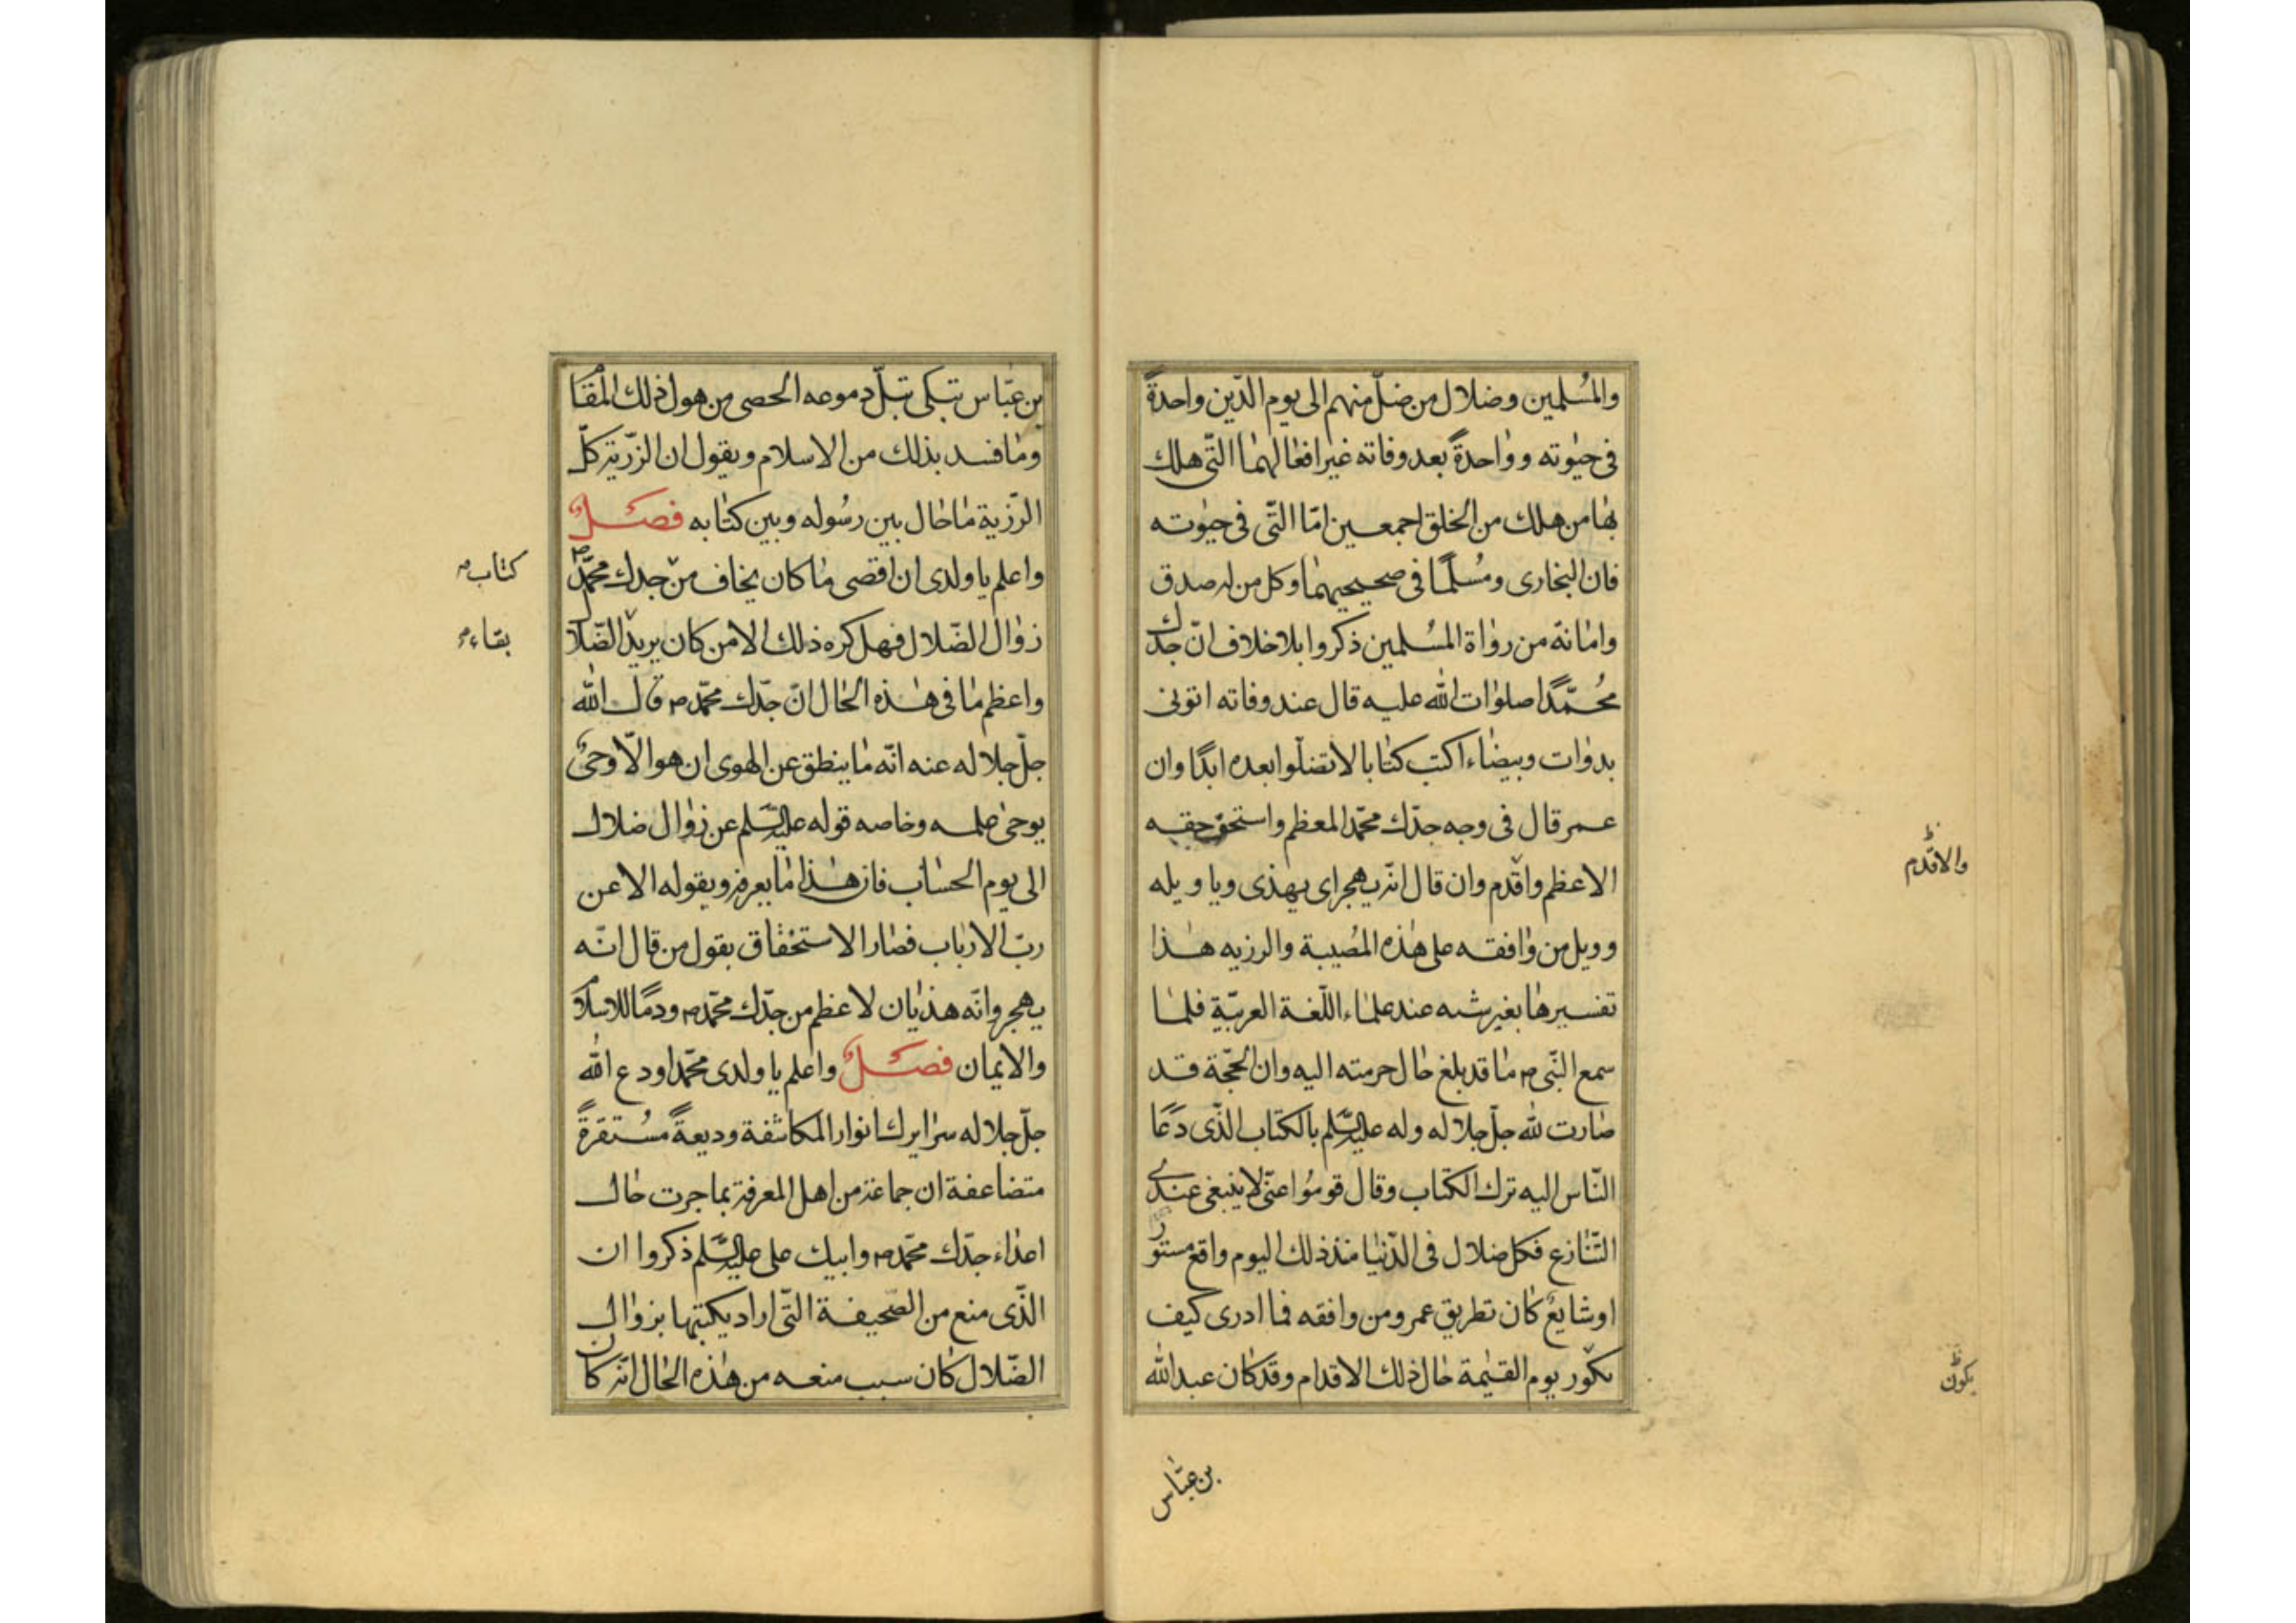 والمُسلمين وضلال من ضلّ منهم الى يوم الدّين واحدةً
فى حيٰوته وواحدةً بعد وفاته غير افعالهما التّى هلك
بها من هلك من الخلق اجمعين امّا التّى فى حيٰوته
فان البخارى ومُسلمًا فى صحيحيهما وكل من له صدق
وامانة من رواة المسُلمين ذكروا بلا خلاف انّ جدّك
محُمّدًا صلوات الله عليه قال عند وفاته اتونى
بدوات وبيضاء اكتب كتابا لا تضلّوا بعده ابدًا وان
عمر قال فى وجه جدّك محمّد المعظم واستحق حقه
الاعظم واقدم وان قال انّه يهجر اى يهذى ويا ويله
وويل من وافقه على هذه المصُيبة والرزيه هذا
تفسيرها بغير شبه عند علماء اللّغة العربيّة فلما
سمع النّبى ص ما قد بلغ حال حرمته اليه وان الحجّة قد
صارت لله جلّ جلاله وله عليه السّلم بالكتاب الّذى دعا
النّاس اليه ترك الكتاب وقال قومُوا عنّى لا ينبغى عندى
التّنازع فكل ضلال فى الدّنيا منذ ذلك اليوم واقع مستور
او شايع كان تطريق عمر ومن وافقه فما ادرى كيف
يكور يوم القيٰمة حال ذلك الاقدام وقد كان عبد الله
والاقدم ظ
يكون ظ
بن عبّاس
بن عبّاس تبكى تبلّ دموعه الحصى من هول ذلك المقام
وما فسد بذلك من الاسلام ويقول ان الرّزيّة كلّ
الرّزية ما حال بين رسُوله وبين كتابه فصل
واعلم يا ولدى ان اقصى ما كان يخاف من جدك محمّد ص
زوال الضّلال فهل كره ذلك الا من كان يريد الضّلال
واعظم ما فى هذه الحال انّ جدّك محمّد ص قال الله
جلّ جلاله عنه انّه ما ينطق عن الهوى ان هو الّا وحىٌ
يوحىٰ جلمه وخاصه قوله عليه السّلم عن زوال ضلال
الى يوم الحساب فان هذا ما يعرفه ويقوله الا عن
ربّ الارباب فصار الاستخفاق بقول من قال انّه
يهجر وانّه هذيان لاعظم من جدّك محمّد ص ودمًا للاسلام
والايمان فصل واعلم يا ولدى محمّد اودع الله
جلّ جلاله سرايرك انوار المكاشفة وديعةً مسُتقرةً
متضاعفة ان جماعة من اهل المعرفة بما جرت حال
اعداء جدّك محمّد ص وابيك على عليه السّلم ذكروا ان
الّذى منع من الصّحيفة التّى اراد يكتبها بزوال
الضّلال كان سبب منعه من هذه الحال انّه كان
كتاب ص
بقاء ص